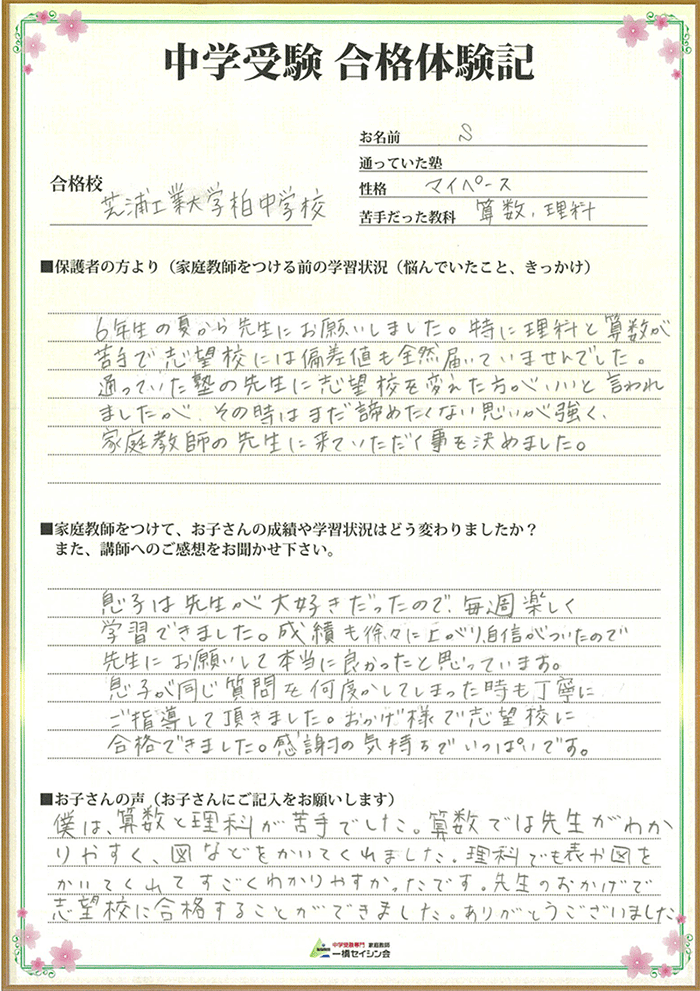 中学受験 合格体験記
お名前 S
通っていた塾
合格校 芝浦工業大学柏中学校
性格 マイペース
苦手だった教科 算数、理科
■保護者の方より（家庭教師をつける前の学習状況（悩んでいたこと、きっかけ）
6年生の夏から先生にお願いしました。特に理科と算数が
苦手で志望校には偏差値も全然届いていませんでした。
通っていた塾の先生に志望校を変えた方がいいと言われ
ましたが、その時はまだ諦めたくない思いが強く、
家庭教師の先生に来ていただく事を決めました。
■家庭教師をつけて、お子さんの成績や学習状況はどう変わりましたか？
また、講師へのご感想をお聞かせ下さい。
息子は先生が大好きだったので、毎週楽しく
学習できました。成績も徐々に上がり、自信がついたので
先生にお願いして本当に良かったと思っています。
息子が同じ質問を何度かしてしまった時も丁寧に
ご指導して頂きました。おかげ様で志望校に
合格できました。感謝の気持ちでいっぱいです。
■お子さんの声（お子さんにご記入をお願いします）
僕は、算数と理科が苦手でした。算数では先生がわか
りやすく、図などをかいてくれました。理科でも表や図を
かいてくれてすごくわかりやすかったです。先生のおかげで
志望校に合格することができました。ありがとうございました。
中学受験専門 家庭教師
一橋セイシン会